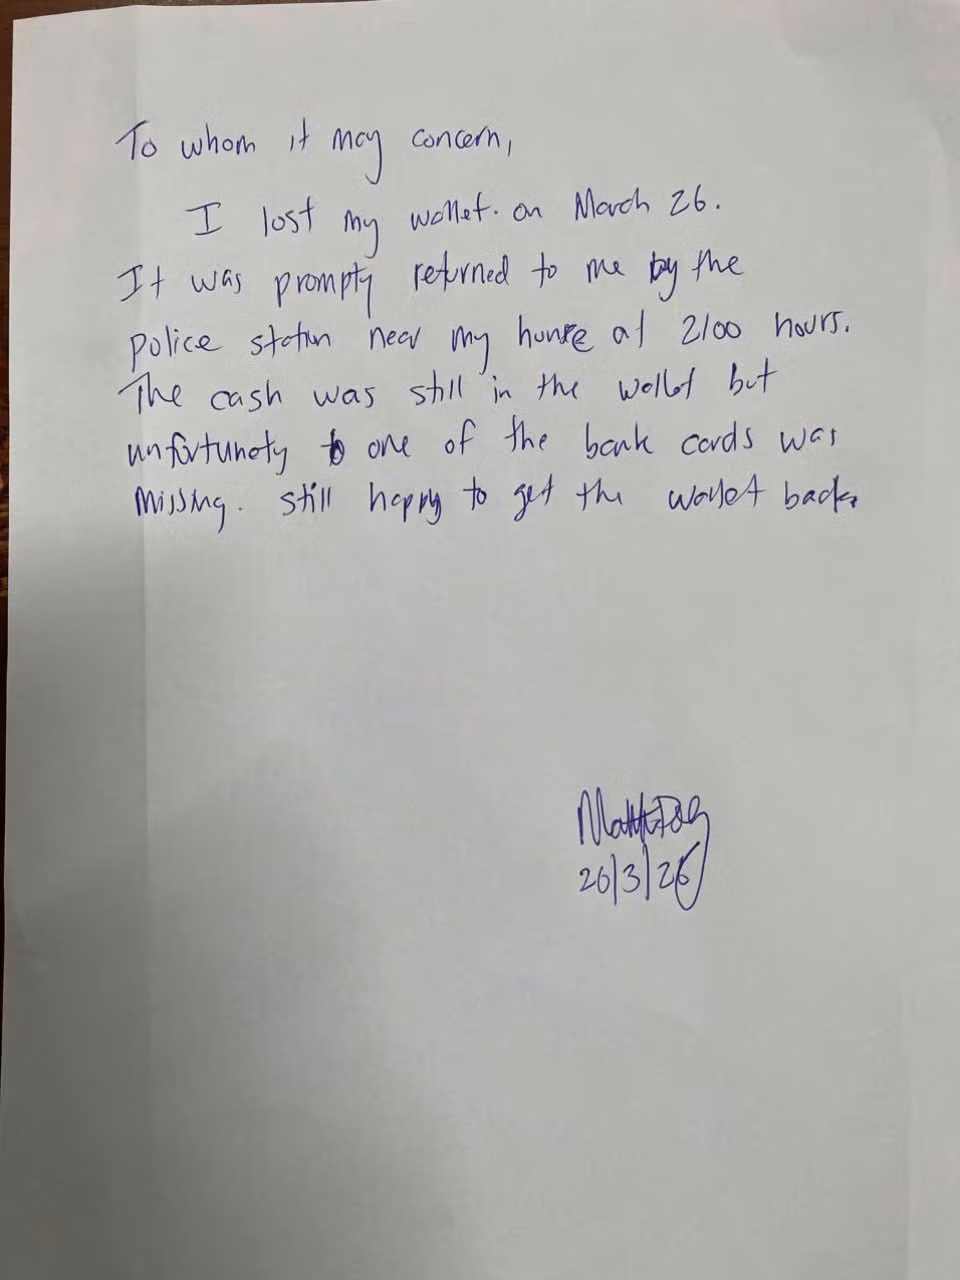 To whom it may concern,
I lost my wallet. on March 26.
It was prompty returned to me by the
police station near my hunse at 2100 hours.
The cash was still in the wallet but
unfortunety one of the bank cards was
missing. still happy to get the wallet back.
26/3/26